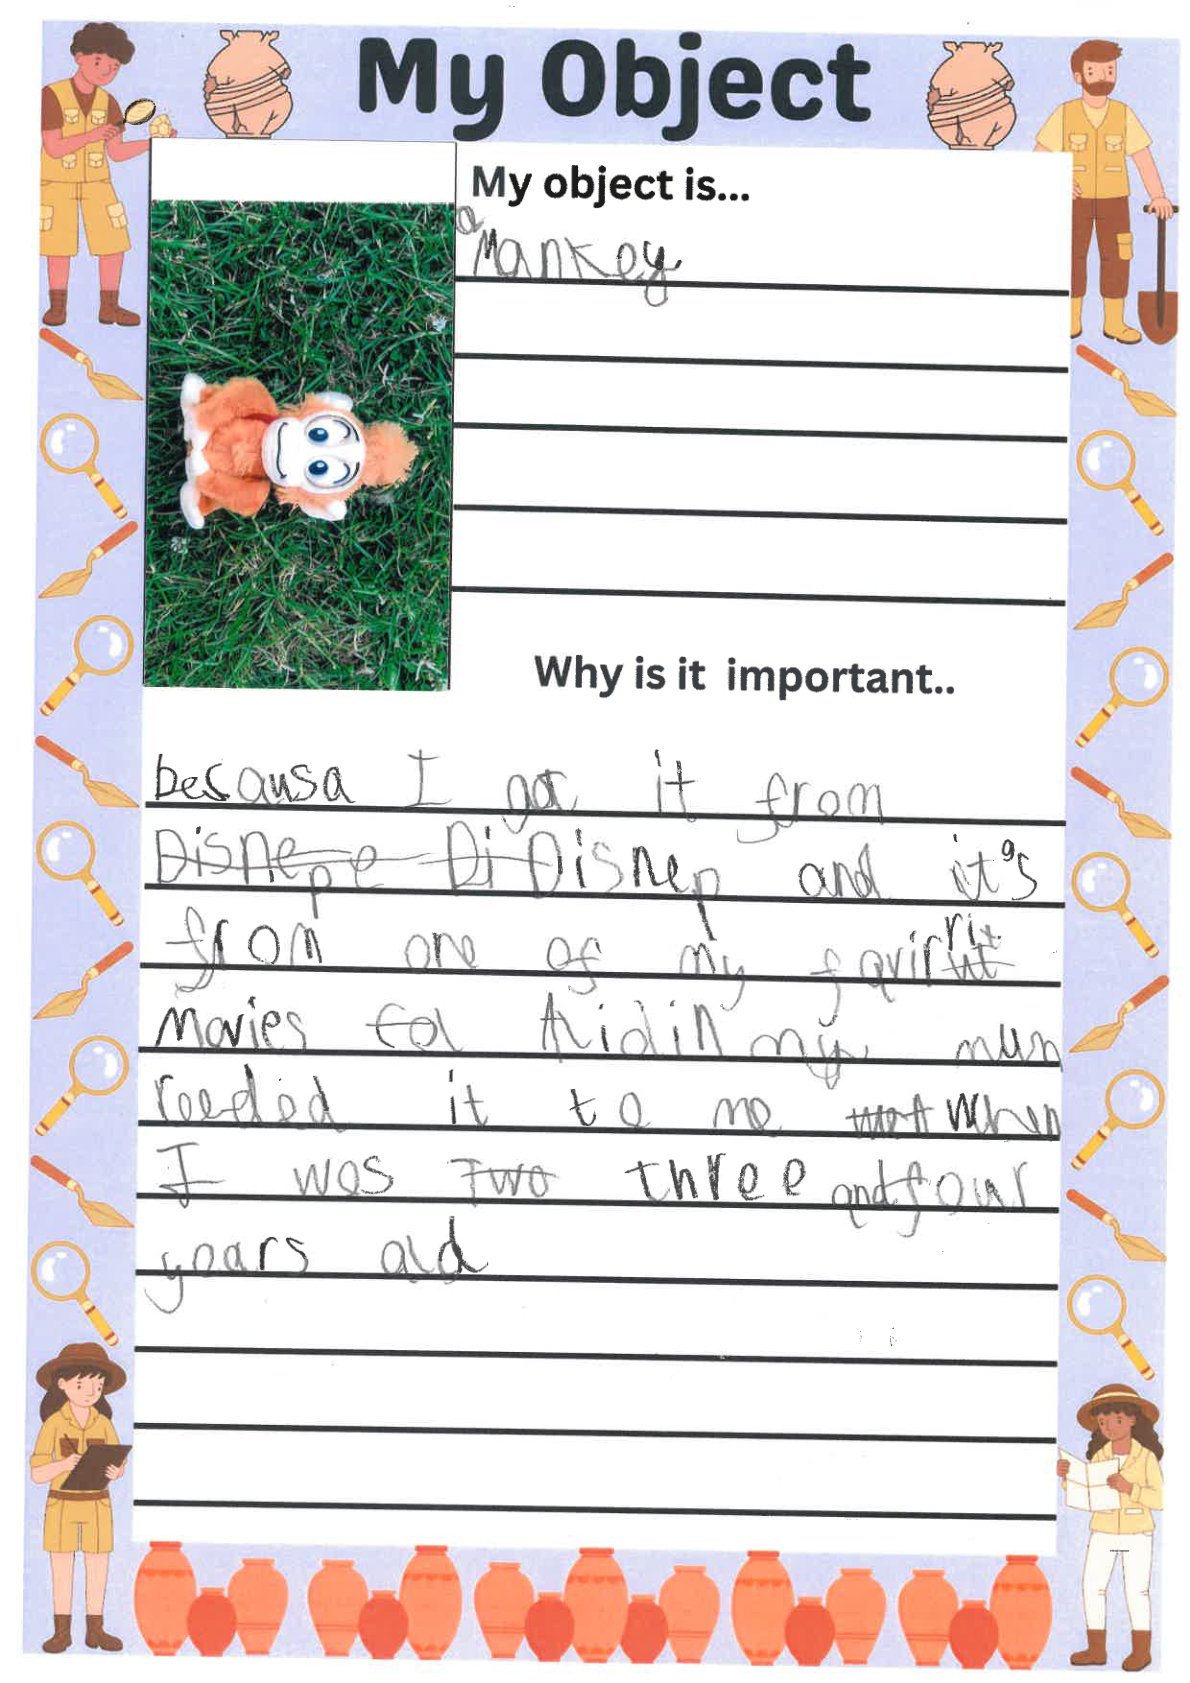 My Object
My object is...
a Mankey
Why is it important..
becausa I got it from
Disnepe Di Disnep and it's
from one of my favirrit
Movies fol Alidin my mun
reeded it to me When
I was Two three and four
years ald